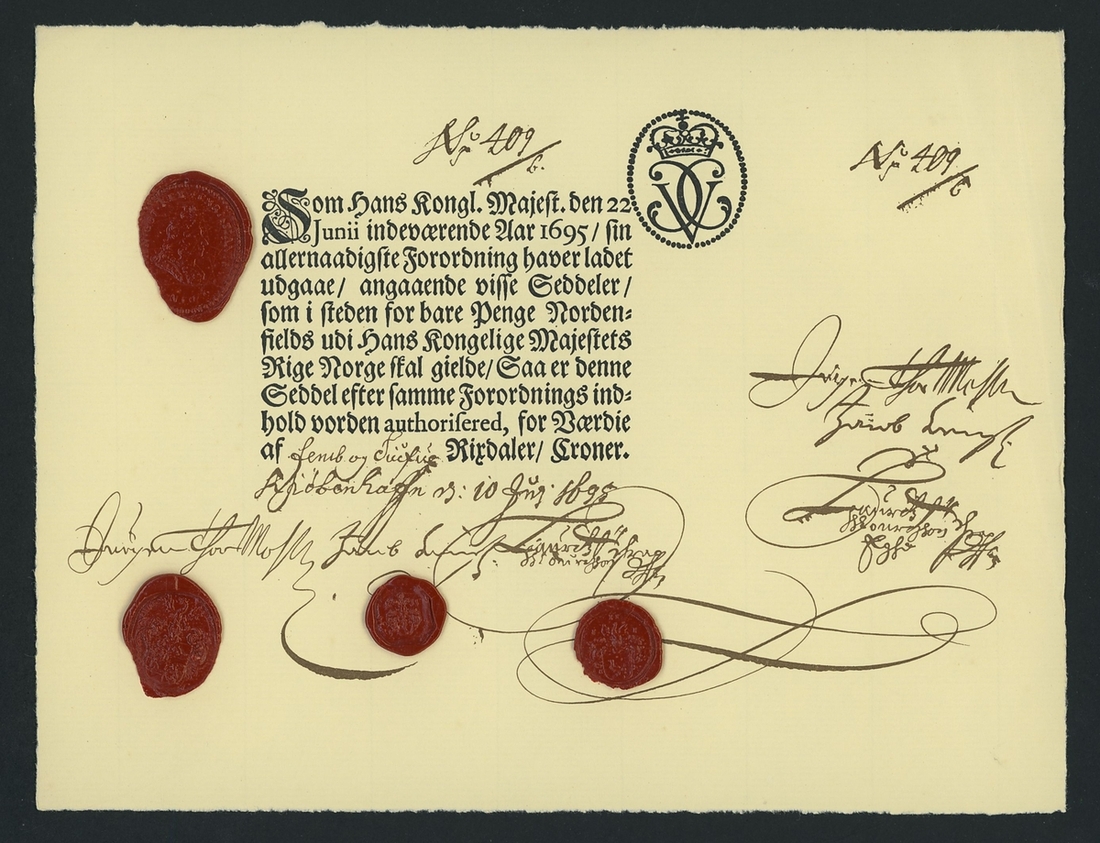 No 409
6.
No 409
6
Som Hans Kongl. Majest. den 22
Junii indeværende Aar 1695/ sin
allernaadigste Forordning haver ladet
udgaae/ angaaende visse Seddeler/
som i steden for bare Penge Norden-
fields udi Hans Kongelige Majestets
Rige Norge skal gielde/ Saa er denne
Seddel efter samme Forordnings ind-
hold vorden authorisered, for Værdie
af femb og Tiufue Rixdaler/ Croner.
Kiøbenhafn d: 10 Julj 1695
Jørgen thor Mohlen
Jørgen thor Mohlen